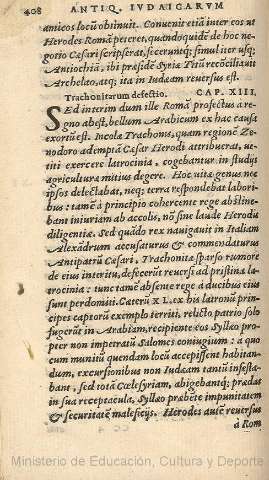 408 ANTIQ. IVDAICARVM
amicos locũ obtinuit. Convenit etiã inter eos ut
Herodes Romã peteret, quandoquidẽ de hoc ne-
gotio Cæsari scripserat, feceruntq; simul iter usq;
Antiochiã, ibi præside Syriæ Tito recõciliavit
Archelao, atq; ita in Iudæam reversus est.
Trachonitarum defectio. CAP. XIII.
SEd interim dum ille Romã profectus a re-
gno abest, bellum Arabicum ex hac causa
exortũ est. Incolæ Trachonis, quam regionẽ Ze-
nodoro ademptã Cæsar Herodi attribuerat, ue-
titi exercere latrocinia, cogebantur in studijs
agriculturæ mitius degere. Hoc vitæ genus nec
ipsos delectabat, neq; terra respondebat labori-
bus: tamẽ a principio cohercente rege abstine-
bant iniuriam ab accolis, nõ sine laude Herodis
diligentiæ. Sed quãdo rex nauigauit in Italiam
Alexãdrum accusaturus & commendaturus
Antipatrũ Cæsari, Trachonitæ sparso rumore
de eius interitu, defecerũt reuersi ad pristina la-
trocinia: tunc tamẽ absente rege a ducibus eius
sunt perdomiti. Cæterũ XL. ex his latronũ prin-
cipes capturũ exemplo territi, relicto patrio solo
fugerũt in Arabiam, recipiente eos Syllæo pro-
pter non impetratũ Salomes coniugium: a quo
cum munitũ quendam locũ accepissent habitan-
dum, excursionibus non Iudæam tantũ infesta-
bant, sed totã Cœlesyriam, abigebantq; prædas
in sua receptacula, Syllæo præbẽte impunitatem
& securitatẽ maleficijs. Herodes autẽ reuersus
a Rom
Ministerio de Educación, Cultura y Deporte